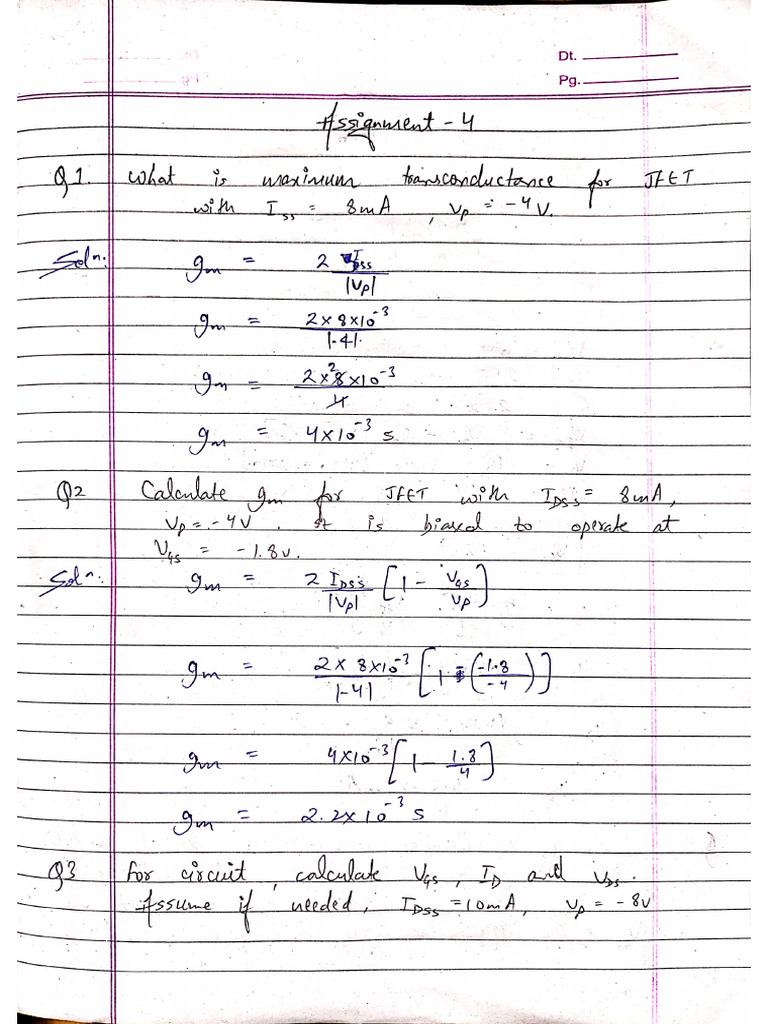 Dt.
Pg.
Assignment - 4
Q1. What is maximum transconductance for JFET
with Iss = 8mA, Vp = -4V.
Solⁿ: gm = 2 IDSS / |Vp|
gm = 2×8×10⁻³ / |-4|
gm = 2×8×10⁻³ / 4 2
gm = 4×10⁻³ s
Q2 Calculate gm for JFET with IDSS = 8mA,
Vp = -4V. It is biased to operate at
VGS = -1.8v.
Solⁿ: gm = 2 IDSS / |Vp| [1 - VGS / Vp]
gm = 2×8×10⁻³ / |-4| [1 - (-1.8 / -4)]
gm = 4×10⁻³ [1 - 1.8 / 4]
gm = 2.2×10⁻³ s
Q3 For circuit, calculate VGS, ID and VDS.
Assume if needed, IDSS = 10mA, Vp = -8v